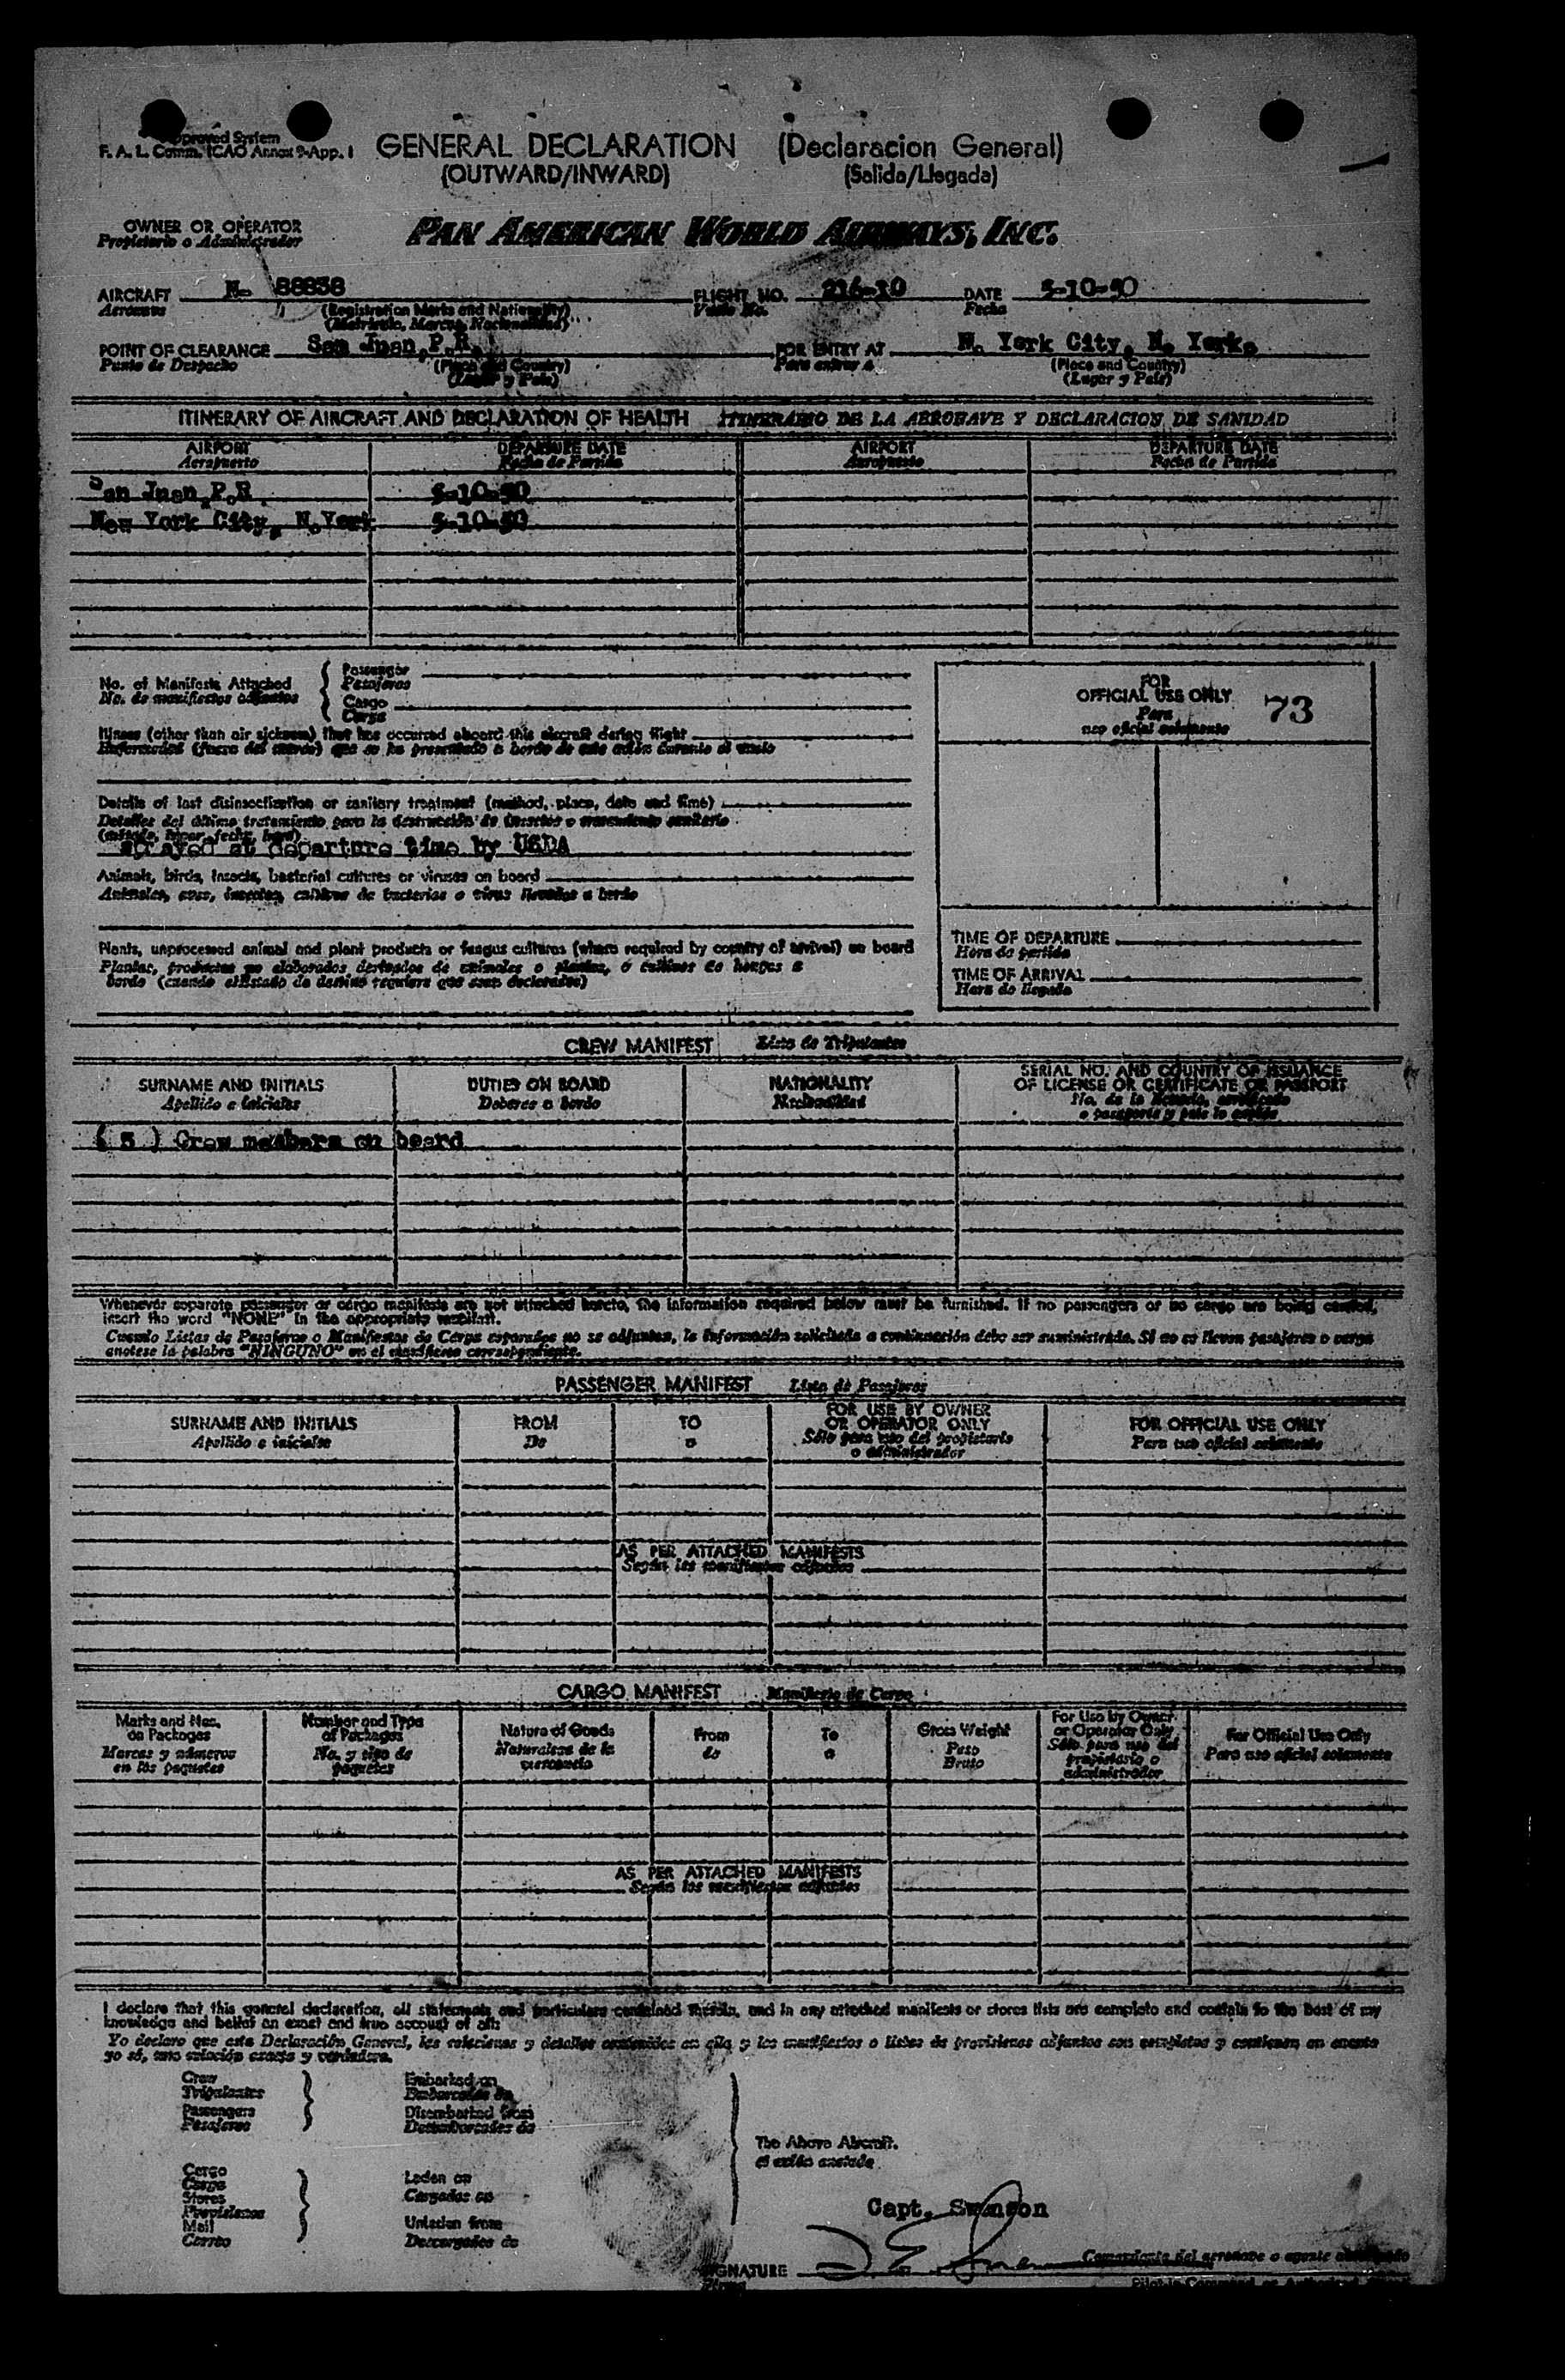 Approved System
F. A. L. Comm. ICAO Annex 9-App. 1
GENERAL DECLARATION (Declaracion General)
(OUTWARD/INWARD) (Salida/Llegada)
OWNER OR OPERATOR
Propietario o Administrador
PAN AMERICAN WORLD AIRWAYS, INC.
AIRCRAFT N- 88838 FLIGHT NO. 216-10 DATE 5-10-50
Aeronave (Registration Marks and Nationality) Vuelo No. Fecha
(Matricula, Marcas, Nacionalidad)
POINT OF CLEARANCE San Juan,P.R. FOR ENTRY AT N. York City, N. York.
Punto de Despacho (Place and Country) Para entrar a (Place and Country)
(Lugar y País) (Lugar y País)
ITINERARY OF AIRCRAFT AND DECLARATION OF HEALTH ITINERARIO DE LA AERONAVE Y DECLARACION DE SANIDAD
AIRPORT DEPARTURE DATE AIRPORT DEPARTURE DATE
Aeropuerto Fecha de Partida Aeropuerto Fecha de Partida
San Juan,P.R. 5-10-50
New York City, N.York 5-10-50
No. of Manifests Attached
No. de manifiestos adjuntos
Passenger
Pasajeros
Cargo
Carga
FOR
OFFICIAL USE ONLY 73
Para
uso oficial solamente
Illness (other than air sickness) that has occurred aboard this aircraft during flight
Enfermedad (fuera del mareo) que se ha presentado a bordo de este avión durante el vuelo
Details of last disinsectization or sanitary treatment (method, place, date and time)
Detalles del último tratamiento para la destrucción de insectos o tratamiento sanitario
(método, lugar, fecha, hora)
sprayed at departure time by USDA
Animals, birds, insects, bacterial cultures or viruses on board
Animales, aves, insectos, cultivos de bacterias o virus llevados a bordo
Plants, unprocessed animal and plant products or fungus cultures (where required by country of arrival) on board
Plantas, productos no elaborados derivados de animales o plantas, o cultivos de hongos a
bordo (cuando el Estado de destino requiera que sean declarados)
TIME OF DEPARTURE
Hora de partida
TIME OF ARRIVAL
Hora de llegada
CREW MANIFEST Lista de Tripulantes
SURNAME AND INITIALS DUTIES ON BOARD NATIONALITY SERIAL NO. AND COUNTRY OF ISSUANCE
OF LICENSE OR CERTIFICATE OR PASSPORT
Apellido e iniciales Deberes a bordo Nacionalidad No. de la licencia, certificado
o pasaporte y país lo expide
( 5 ) Crew members on board
Whenever separate passenger or cargo manifests are not attached hereto, the information required below must be furnished. If no passengers or no cargo are being carried,
insert the word "NONE" in the appropriate manifest.
Cuando Listas de Pasajeros o Manifiestos de Carga separados no se adjuntan, la información solicitada a continuación debe ser suministrada. Si no se llevan pasajeros o carga
anotese la palabra "NINGUNO" en el manifiesto correspondiente.
PASSENGER MANIFEST Lista de Pasajeros
SURNAME AND INITIALS FROM TO FOR USE BY OWNER
OR OPERATOR ONLY FOR OFFICIAL USE ONLY
Apellido e iniciales De a Sólo para uso del propietario
o administrador Para uso oficial solamente
AS PER ATTACHED MANIFESTS
Según los manifiestos adjuntos
CARGO MANIFEST Manifiesto de Carga
Marks and Nos.
on Packages
Marcas y números
en los paquetes
Number and Type
of Packages
No. y tipo de
paquetes
Nature of Goods
Naturaleza de la
mercancía
From
de
To
a
Gross Weight
Peso
Bruto
For Use by Owner
or Operator Only
Sólo para uso del
propietario o
administrador
For Official Use Only
Para uso oficial solamente
AS PER ATTACHED MANIFESTS
Según los manifiestos adjuntos
I declare that this general declaration, all statements and particulars contained therein, and in any attached manifests or stores lists are complete and contain to the best of my
knowledge and belief an exact and true account of all:
Yo declaro que esta Declaración General, las relaciones y detalles contenidos en ella y los manifiestos o listas de provisiones adjuntos son completos y contienen en cuanto
yo sé, una relación exacta y verdadera.
Crew
Tripulantes
Passengers
Pasajeros
Embarked on
Embarcados en
Disembarked from
Desembarcados de
The Above Aircraft.
el avión anotado
Cargo
Carga
Stores
Provisiones
Mail
Correo
Laden on
Cargados en
Unladen from
Descargados de
Capt. Swanson
SIGNATURE
Firma
Comandante del aeronave o agente autorizado